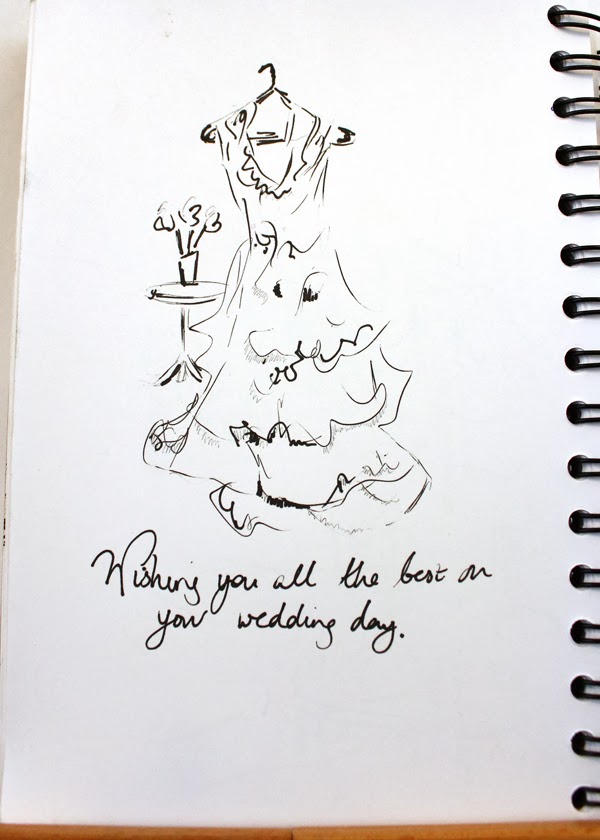 Wishing you all the best on
your wedding day.